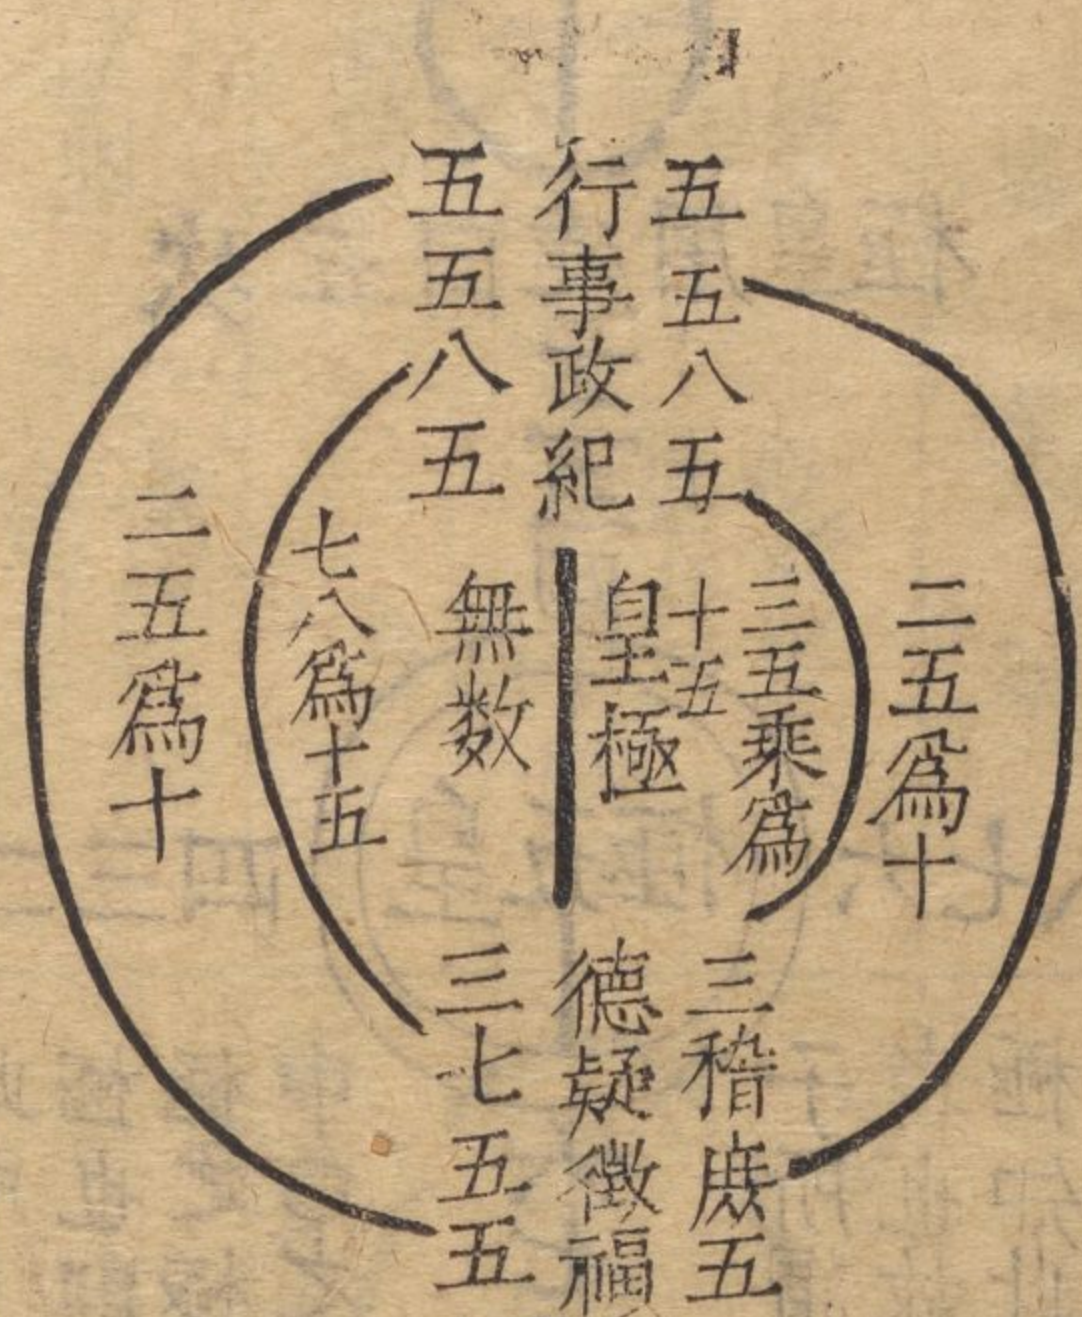 五五八五
行事政紀
五五八五
二五爲十
三五乘爲
十五
皇極
無数
七八爲十五
二五爲十
三稽庶五
德疑徵福
三七五五